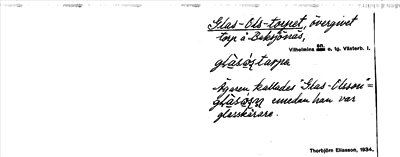 Glas-Ols-torpet, övergivet
torp å Baksjönäs,
Vilhelmina sn o. tg. Västerb. l.
glɑ̀sóstarpa
Ägaren kallades "Glas-Olsson" =
emedan han var
glasskärare.
Thorbjörn Eliasson, 1934.